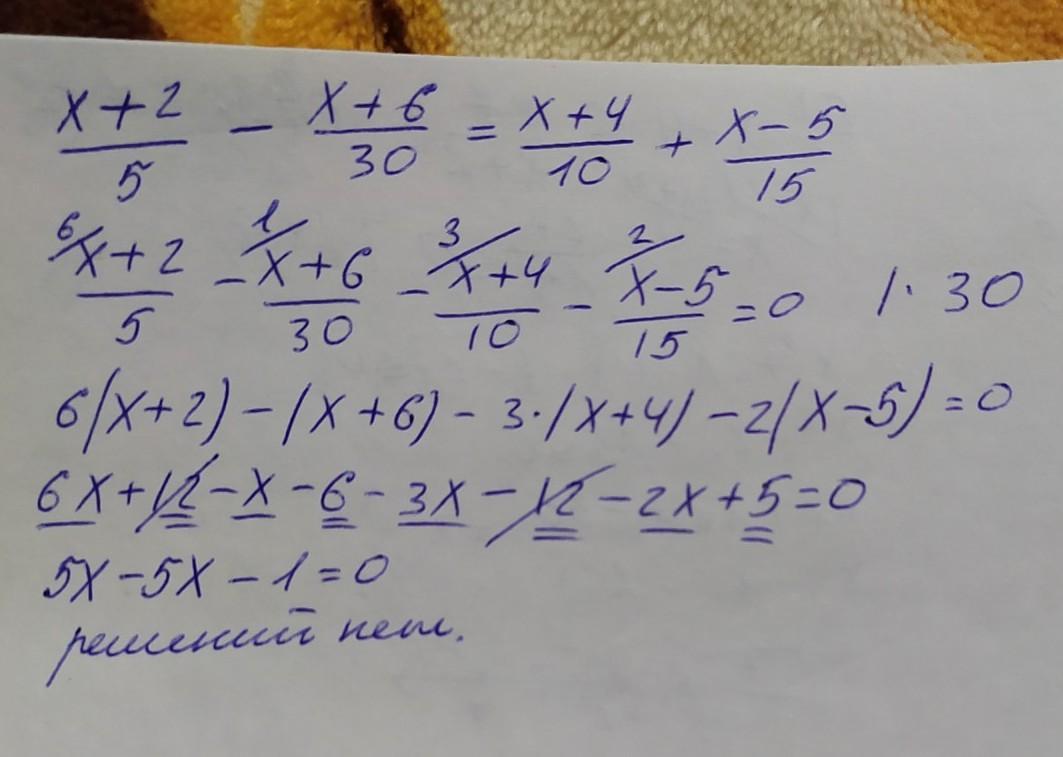 x+2/5 - x+6/30 = x+4/10 + x-5/15
6/ x+2/5 - 1/ x+6/30 - 3/ x+4/10 - 2/ x-5/15 = 0 | · 30
6(x+2) - (x+6) - 3·(x+4) - 2(x-5) = 0
6x+12-x-6-3x-12-2x+5=0
5x-5x-1=0
решений нет.